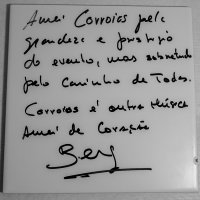 Amei Corroios pela
grandeza e prestígio
do evento, mas sobretudo
pelo carinho de Todos.
Corroios é outra Música
Amei de Coração